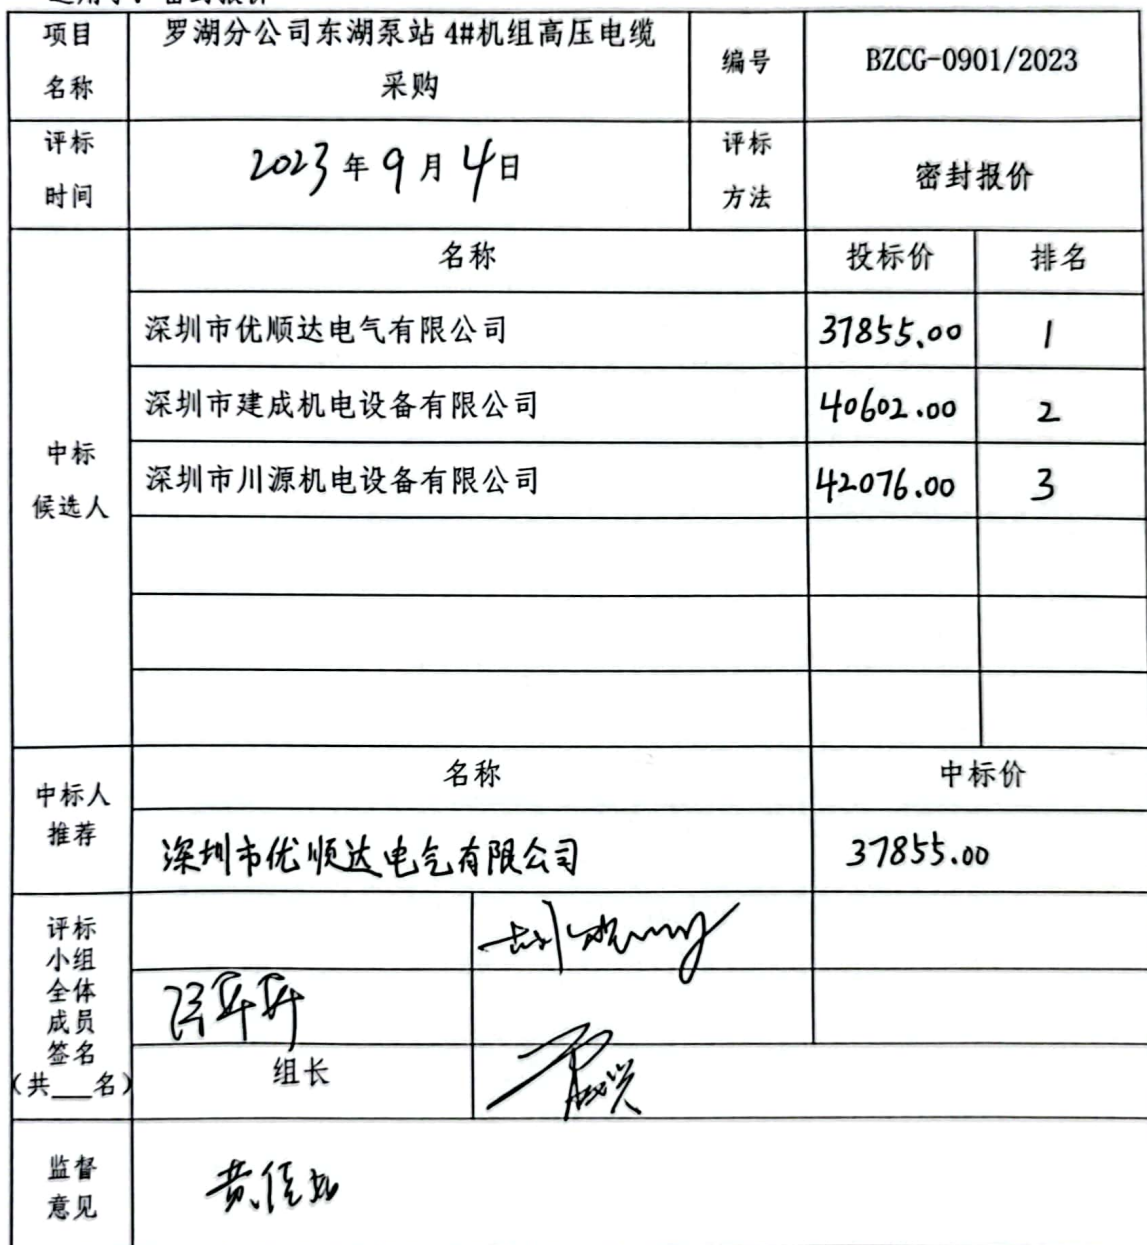 项目名称
罗湖分公司东湖泵站 4#机组高压电缆
采购
编号
BZCG-0901/2023
评标时间
2023年9月4日
评标方法
密封报价
中标候选人
名称
投标价
排名
深圳市优顺达电气有限公司
37855.00
1
深圳市建成机电设备有限公司
40602.00
2
深圳市川源机电设备有限公司
42076.00
3
中标人推荐
名称
中标价
深圳市优顺达电气有限公司
37855.00
评标
小组
全体
成员
签名
(共___名)
组长
监督
意见